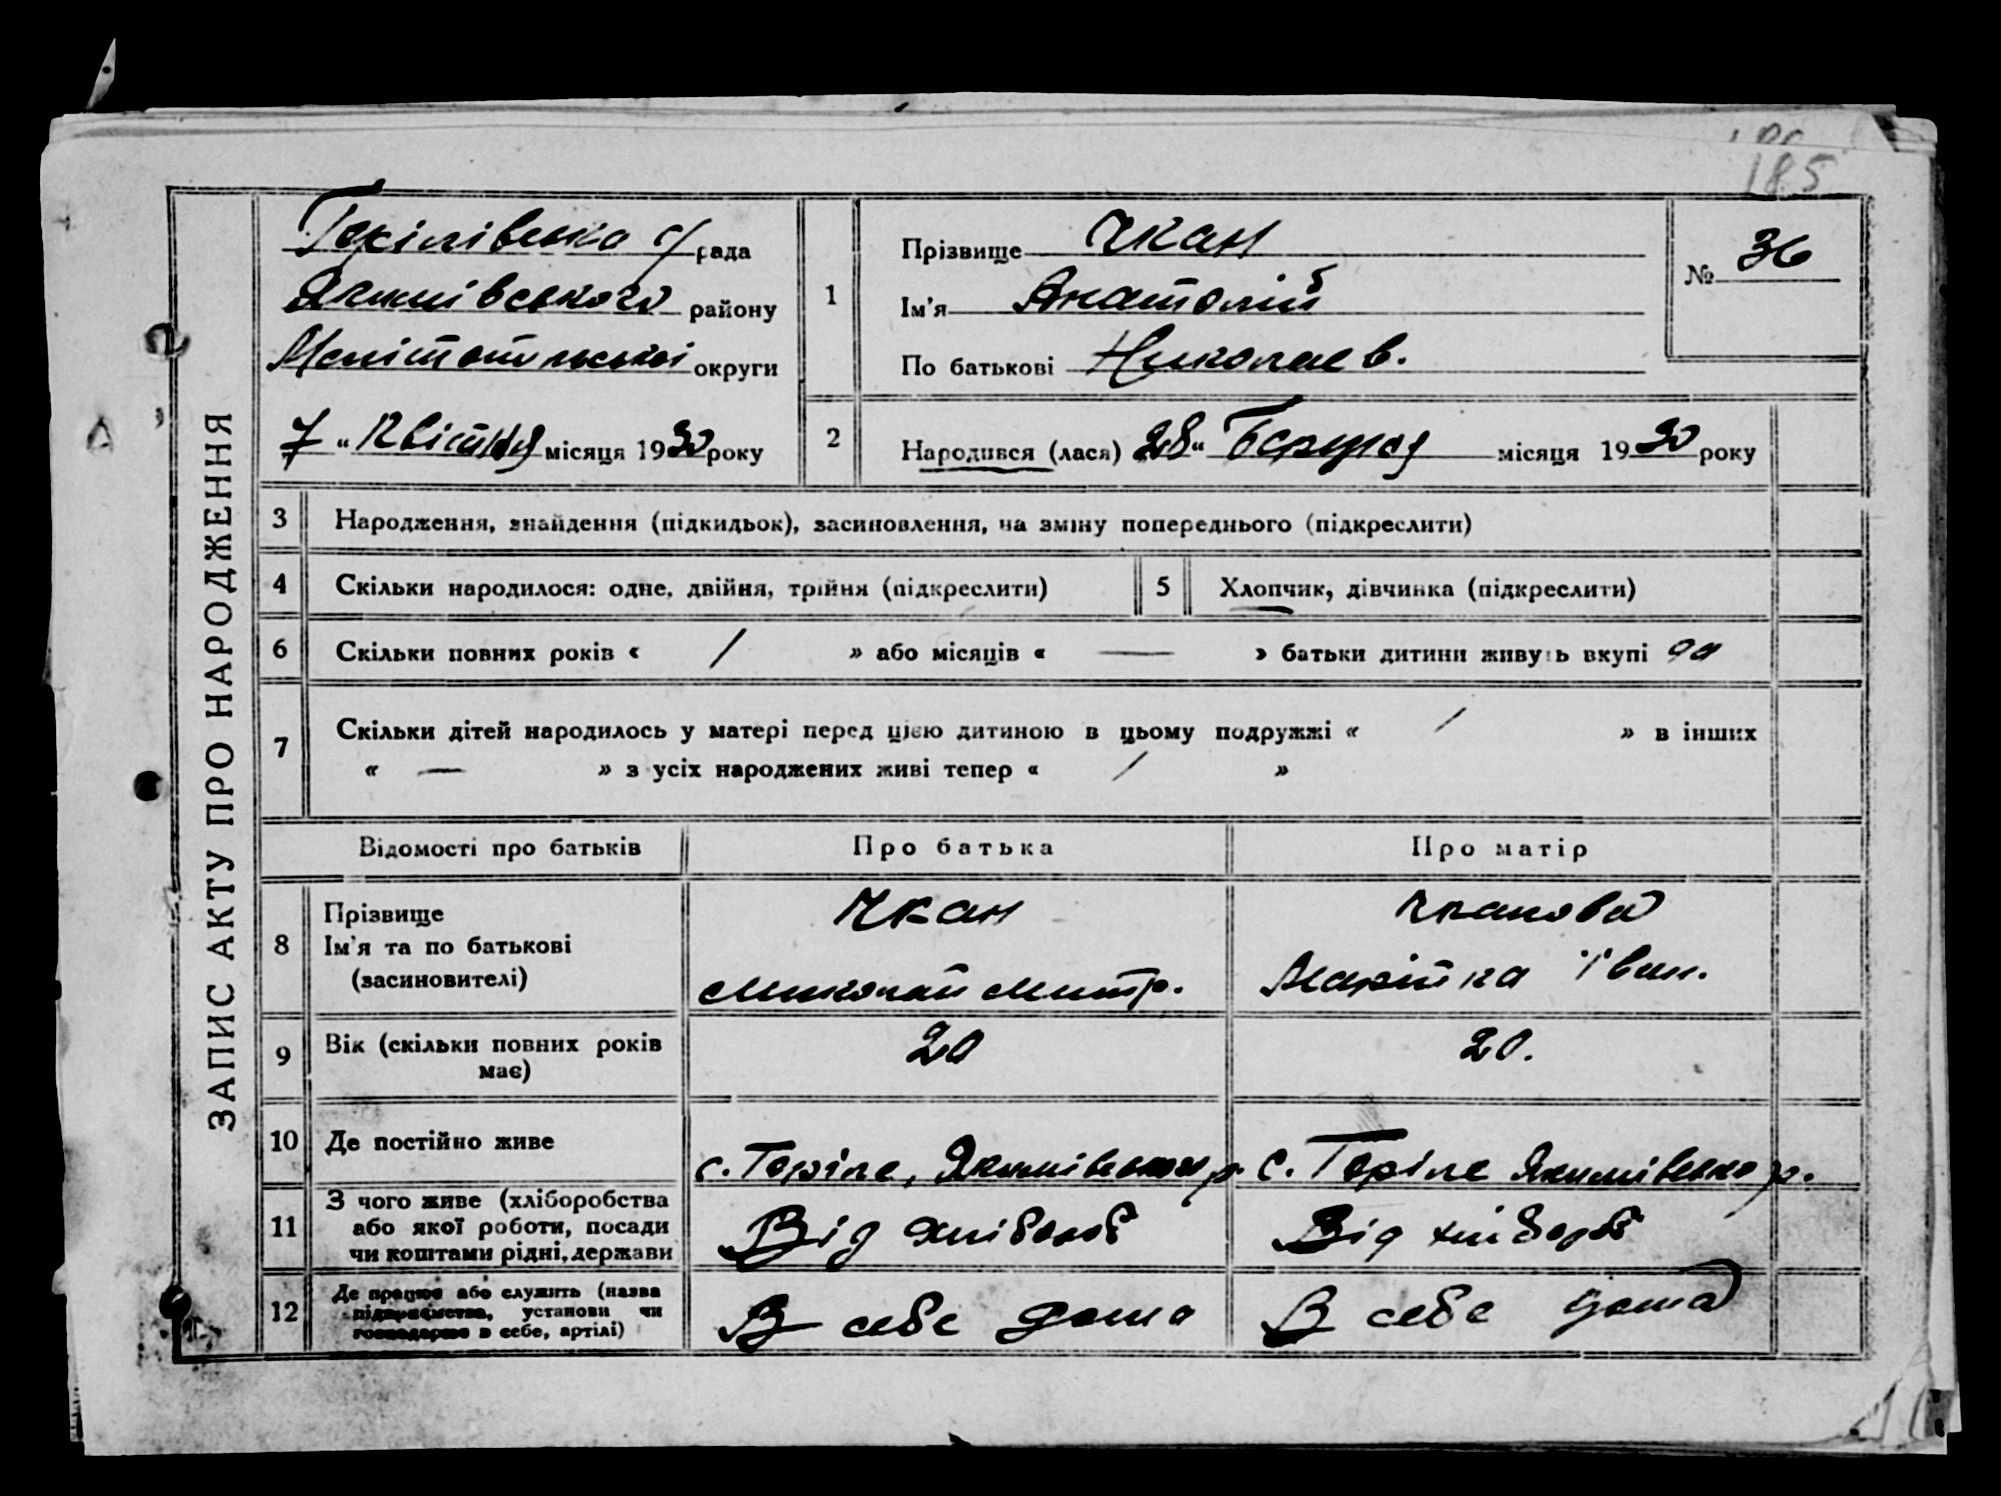 185
ЗАПИС АКТУ ПРО НАРОДЖЕННЯ
Горілівська с/рада
Якимівського району
Мелітопільської округи
7 " Квітня місяця 1930 року
1
Прізвище Чкан
Ім'я Анатолій
По батькові Николаев.
№ 36
2
Народився (лася) 28 " Березня місяця 1930 року
3 Народження, знайдення (підкидьок), засиновлення, на зміну попереднього (підкреслити)
4 Скільки народилося: одне, двійня, трійня (підкреслити) 5 Хлопчик, дівчинка (підкреслити)
6 Скільки повних років « / » або місяців « — » батьки дитини живуть вкупі
7 Скільки дітей народилось у матері перед цією дитиною в цьому подружжі « / » в інших
« — » з усіх народжених живі тепер « / »
Відомості про батьків Про батька Про матір
8 Прізвище
Ім'я та по батькові
(засиновителі)
Чкан
Миколай Митр.
Чканова
Марійка Іван.
9 Вік (скільки повних років
має)
20
20.
10 Де постійно живе
с. Горіле, Якимівського р.
с. Горіле Якимівсько р.
11 З чого живе (хліборобства
або якої роботи, посади
чи коштами рідні, держави
Від хлібороб
Від хлібороб
12 Де працює або служить (назва
підприємства, установи чи
господарює в себе, артілі)
В себе дома
В себе дома